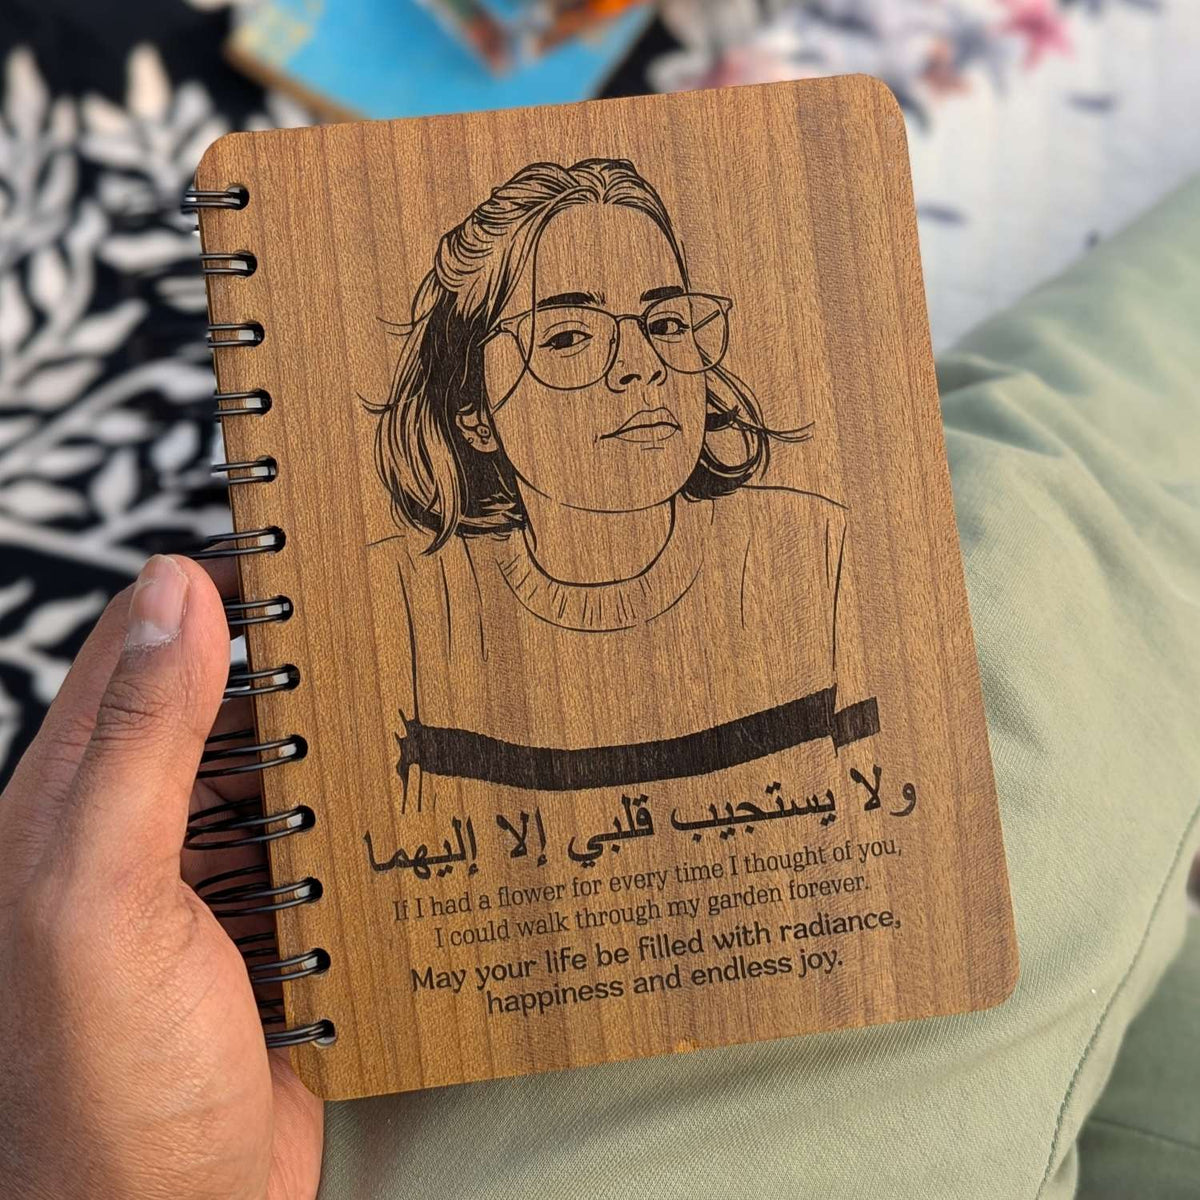 ولا يستجيب قلبي إلا إليهما
If I had a flower for every time I thought of you,
I could walk through my garden forever.
May your life be filled with radiance,
happiness and endless joy.